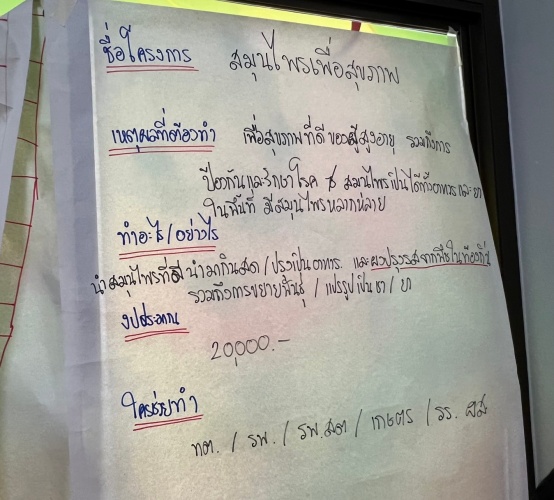 ชื่อโครงการ สมุนไพรเพื่อสุขภาพ
เหตุผลที่ต้องทำ เพื่อสุขภาพที่ดี ของผู้สูงอายุ รวมถึงการ
ป้องกันและรักษาโรค สมุนไพรเป็นได้ทั้งอาหารและยา
ในพื้นที่ มีสมุนไพรหลากหลาย
ทำอะไร/อย่างไร
นำสมุนไพรที่มี นำมากินสด/ปรุงเป็นอาหาร และผงปรุงรสจากพืชในท้องถิ่น
รวมถึงการขยายพันธุ์ / แปรรูปเป็นชา / ยา
งบประมาณ
20,000.-
ใครช่วยทำ
ทต. / รพ. / รพ.สต / เกษตร / รร. ผส